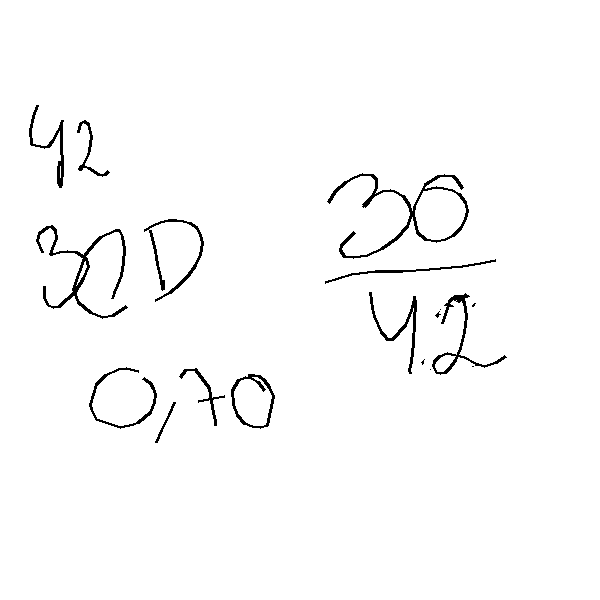 42
30D
0,70
30
42